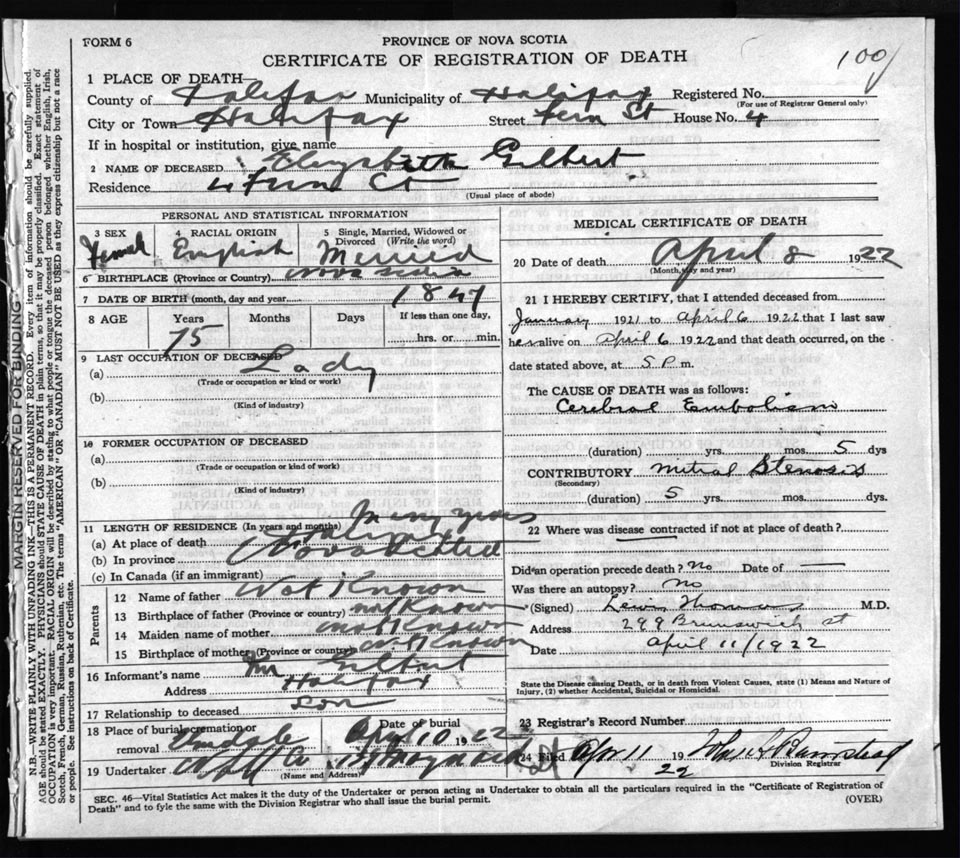 FORM 6
PROVINCE OF NOVA SCOTIA
CERTIFICATE OF REGISTRATION OF DEATH
100
1 PLACE OF DEATH—
County of Halifax Municipality of Halifax Registered No.
(For use of Registrar General only)
City or Town Halifax Street Fern St House No. 4
If in hospital or institution, give name
2 NAME OF DECEASED Elizabeth Gilbert
Residence 4 Fern Ct
(Usual place of abode)
PERSONAL AND STATISTICAL INFORMATION
3 SEX 4 RACIAL ORIGIN 5 Single, Married, Widowed or Divorced (Write the word)
Femal English Married
6 BIRTHPLACE (Province or Country) Nova Scotia
7 DATE OF BIRTH (month, day and year) 1847
8 AGE Years Months Days If less than one day,
75 hrs. or min.
9 LAST OCCUPATION OF DECEASED
(a) Lady
(Trade or occupation or kind or work)
(b)
(Kind of industry)
10 FORMER OCCUPATION OF DECEASED
(a)
(Trade or occupation or kind of work)
(b)
(Kind of industry)
11 LENGTH OF RESIDENCE (In years and months) Many years
(a) At place of death Halifax
(b) In province
(c) In Canada (if an immigrant)
Parents
12 Name of father Not Known
13 Birthplace of father (Province or country) not Known
14 Maiden name of mother not Known
15 Birthplace of mother (Province or country) not Known
16 Informant's name Mr Gilbert
Address Halifax
17 Relationship to deceased son
18 Place of burial, cremation or removal Date of burial
Apr 10 1922
19 Undertaker
(Name and Address)
MEDICAL CERTIFICATE OF DEATH
20 Date of death April 8 1922
(Month, day and year)
21 I HEREBY CERTIFY, that I attended deceased from
January 1921 to April 6 1922 that I last saw
her alive on April 6 1922 and that death occurred, on the
date stated above, at 5 P m.
The CAUSE OF DEATH was as follows:
Cerebral Embolism
(duration) yrs. mos. 5 dys
CONTRIBUTORY Mitral Stenosis
(Secondary)
(duration) 5 yrs. mos. dys.
22 Where was disease contracted if not at place of death?
Did an operation precede death? No Date of —
Was there an autopsy? No
(Signed) Lewis Thomas M.D.
Address 299 Brunswick st
Date April 11/1922
State the Disease causing Death, or in death from Violent Causes, state (1) Means and Nature of
Injury, (2) whether Accidental, Suicidal or Homicidal.
23 Registrar's Record Number
24 Filed Apr 11 1922
Division Registrar
SEC. 46—Vital Statistics Act makes it the duty of the Undertaker or person acting as Undertaker to obtain all the particulars required in the "Certificate of Registration of
Death" and to fyle the same with the Division Registrar who shall issue the burial permit. (OVER)
MARGIN RESERVED FOR BINDING
N.B.—WRITE PLAINLY WITH UNFADING INK—THIS IS A PERMANENT RECORD. Every item of information should be carefully supplied.
AGE should be stated EXACTLY. PHYSICIANS should STATE CAUSE OF DEATH in plain terms, so that it may be properly classified. Exact statement of
OCCUPATION is very important. RACIAL ORIGIN will be described by stating to what people or tongue the deceased person belonged whether English, Irish,
Scotch, French, German, Russian, Ruthenian, etc. The terms "AMERICAN" OR "CANADIAN" MUST NOT BE USED as they express citizenship but not a race
or people. See instructions on back of Certificate.